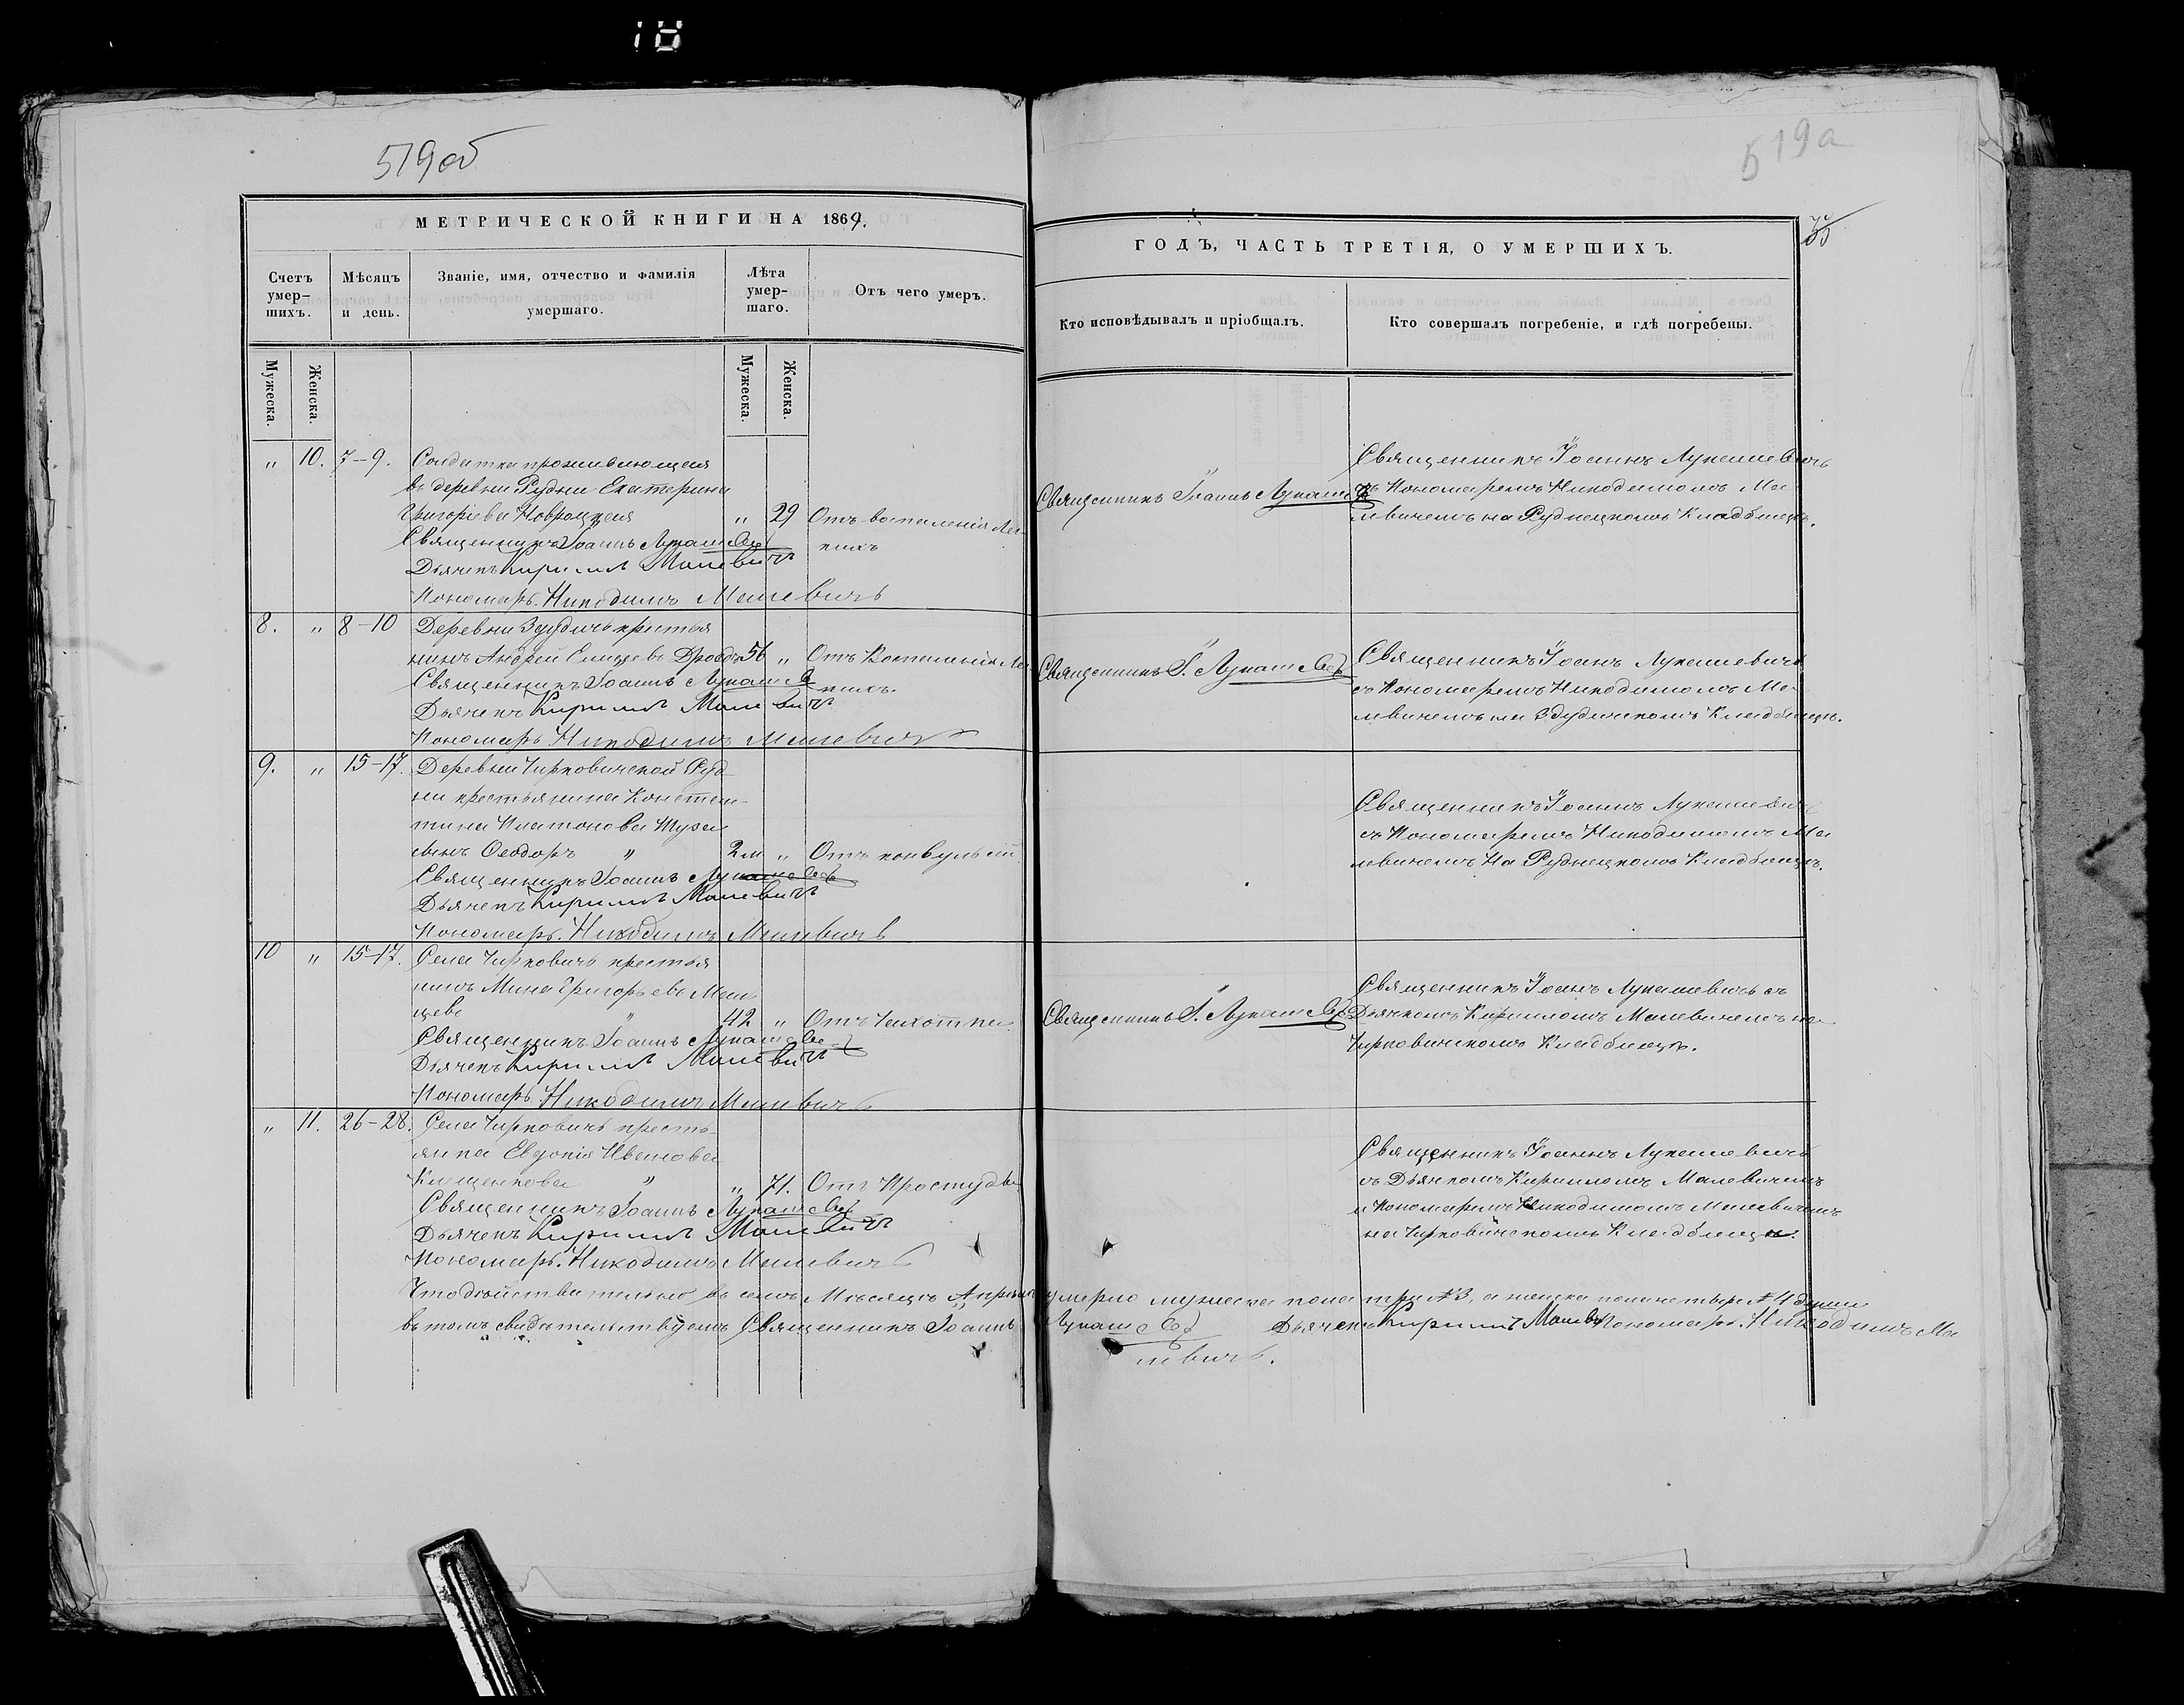 18
519об
519а
МЕТРИЧЕСКОЙ КНИГИ НА 1869.
Счетъ умер-шихъ.
Мѣсяцъ и день.
Званіе, имя, отчество и фамилія умершаго.
Лѣта умер-шаго.
Отъ чего умеръ.
Мужеска.
Женска.
Мужеска.
Женска.
„ 10. 7-9. Солдатка проживающая
въ деревни Рудни Екатерина
Григоріева Новрацкая „ 29 Отъ воспаленія Лег-
Священникъ Іоаннъ Лукашевичъ кихъ
Дьячекъ Кириллъ Малевичъ
Пономарь Никодимъ Малевичъ
8. „ 8-10 Деревни Здудичъ крестья
нинъ Андрей Елисеевъ Дроздъ 56 „ Отъ Воспаленія Ле
Священникъ Іоаннъ Лукашевичъ кихъ.
Дьячекъ Кириллъ Малевичъ
Пономарь Никодимъ Малевичъ
9. „ 15-17. Деревни Чирковичской Руд-
ни крестьянина Констан-
тина Платонова
сынъ Феодоръ „ 2м „ Отъ конвульсій
Священникъ Іоаннъ Лукашевичъ
Дьячекъ Кириллъ Малевичъ
Пономарь Никодимъ Малевичъ
10 „ 15-17. Села Чирковичъ крестья
нинъ Мина Григорьевъ
„ 42 „ Отъ Чахотки
Священникъ Іоаннъ Лукашевичъ
Дьячекъ Кириллъ Малевичъ
Пономарь Никодимъ Малевичъ
„ 11. 26-28. Села Чирковичъ кресть-
янка Евдокія Иванова
Клещенкова „ „ 71. Отъ Простуды
Священникъ Іоаннъ Лукашевичъ
Дьячекъ Кириллъ Малевичъ
Пономарь Никодимъ Малевичъ
ГОДЪ, ЧАСТЬ ТРЕТІЯ, О УМЕРШИХЪ.
Кто исповѣдывалъ и пріобщалъ.
Кто совершалъ погребеніе, и гдѣ погребены.
Священникъ Іоаннъ Лукашевичъ
Священникъ Іоаннъ Лукашевичъ
съ Пономаремъ Никодимомъ Ма
левичемъ на Руднецкомъ Кладбищѣ.
Священникъ І. Лукашевичъ
Священникъ Іоаннъ Лукашевичъ
съ Пономаремъ Никодимомъ Ма
левичемъ на Здудичскомъ Кладбищѣ.
Священникъ Іоаннъ Лукашевичъ
съ Пономаремъ Никодимомъ Ма
левичемъ На Руднецкомъ Кладбищѣ.
Священникъ І. Лукашевичъ
Священникъ Іоаннъ Лукашевичъ съ
Дьячкомъ Кирилломъ Малевичемъ на
Чирковичскомъ Кладбищѣ.
Священникъ Іоаннъ Лукашевичъ
съ Дьячкомъ Кирилломъ Малевичемъ
и Пономаремъ Никодимомъ Малевичемъ
на Чирковичскомъ Кладбищѣ.
Что дѣйствительно въ семъ Мѣсяцѣ Апрѣлѣ умерло мужеска пола три №3, а женска пола четыре №4 души
въ томъ свидѣтельствуемъ Священникъ Іоаннъ Лукашевичъ Дьячекъ Кириллъ Малевичъ Пономарь Никодимъ Ма
левичъ.